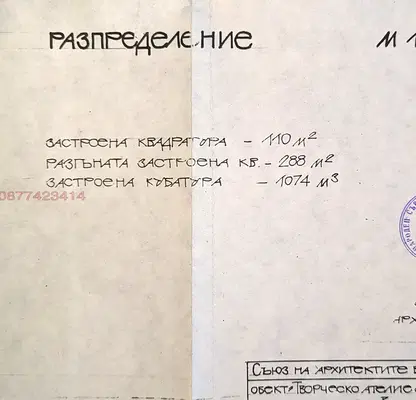 РАЗПРЕДЕЛЕНИЕ М 1
ЗАСТРОЕНА КВАДРАТУРА - 110 М²
РАЗГЪНАТА ЗАСТРОЕНА КВ. - 288 М²
ЗАСТРОЕНА КУБАТУРА - 1074 М³
0877423414
АРХ
СЪЮЗ НА АРХИТЕКТИТЕ В
ОБЕКТ: ТВОРЧЕСКО АТЕЛИЕ